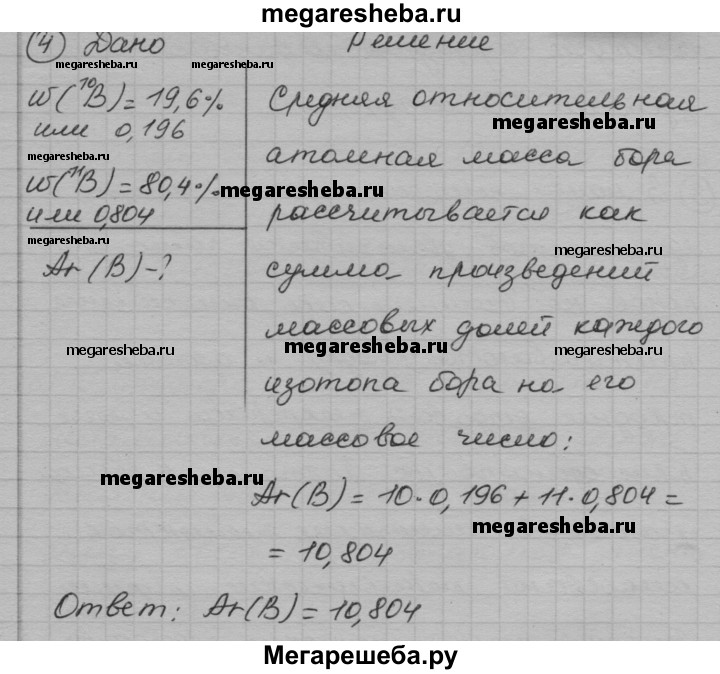 megaresheba.ru
④ Дано Решение
megaresheba.ru megaresheba.ru
w(¹⁰B) = 19,6% Средняя относительная
или 0,196 megaresheba.ru
megaresheba.ru атомная масса бора
w(¹¹B) = 80,4% megaresheba.ru
или 0,804 рассчитывается как
megaresheba.ru megaresheba.ru
Ar(B) - ? сумма произведений
массовых долей каждого
megaresheba.ru megaresheba.ru megaresheba.ru
изотопа бора на его
массовое число:
megaresheba.ru
Ar(B) = 10·0,196 + 11·0,804 =
megaresheba.ru
= 10,804
Ответ: Ar(B) = 10,804
Мегарешеба.ру